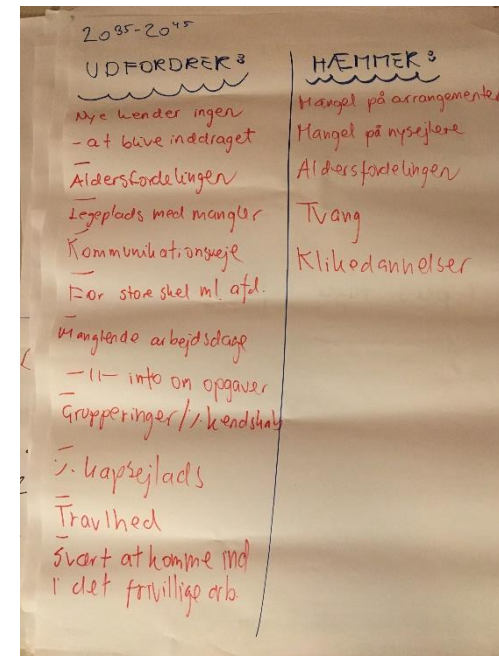 2035-2045
UDFORDRER:
Nye kender ingen
- at blive inddraget
Aldersfordelingen
Legeplads med mangler
Kommunikationsveje
For store skel ml. afd.
Manglende arbejdsdage
-11- info om opgaver
Grupperinger/÷ kendskab
÷ kapsejlads
Travlhed
Svært at komme ind
i det frivillige arb.
HÆMMER:
Mangel på arrangementer
Mangel på nysejlere
Aldersfordelingen
Tvang
Klikedannelser